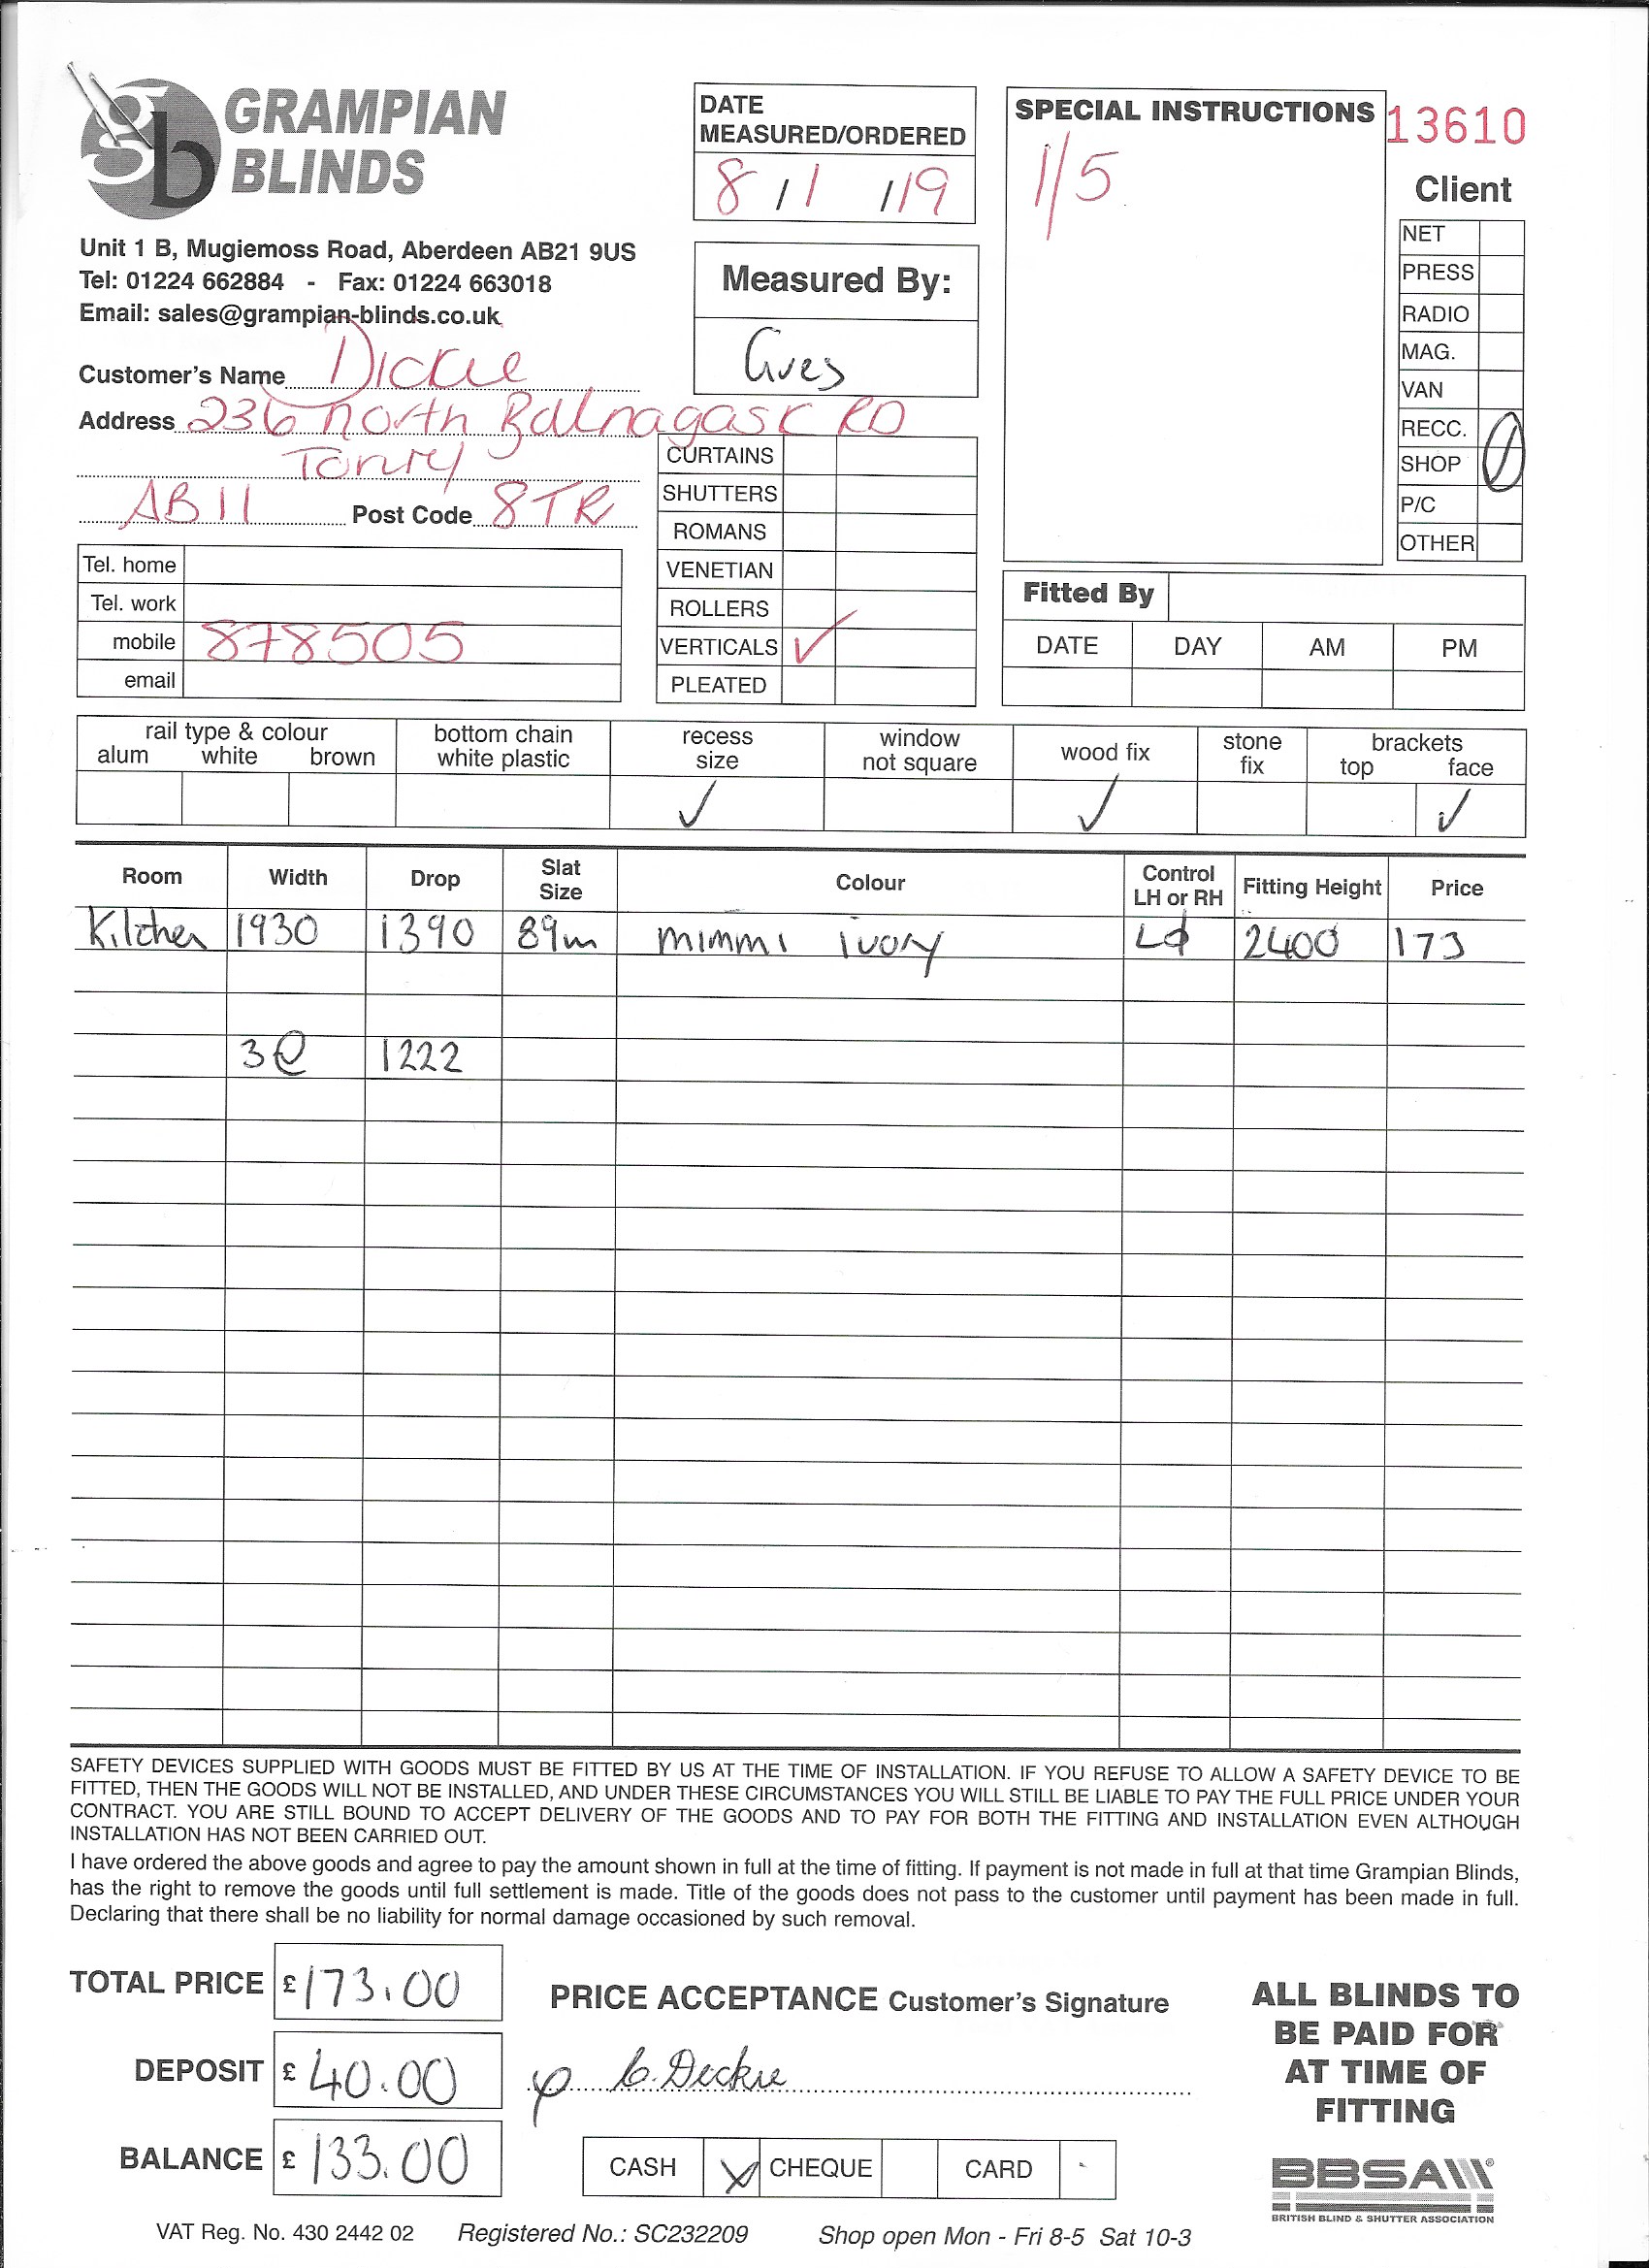 gb GRAMPIAN
BLINDS
Unit 1 B, Mugiemoss Road, Aberdeen AB21 9US
Tel: 01224 662884 - Fax: 01224 663018
Email: sales@grampian-blinds.co.uk
DATE
MEASURED/ORDERED
8 / 1 / 19
Measured By:
SPECIAL INSTRUCTIONS
1/5
13610
Client
NET
PRESS
RADIO
MAG.
VAN
RECC.
SHOP
P/C
OTHER
Customer's Name Dickie
Address 236 North Balnagask RD
Torry
AB11 Post Code 8TR
Tel. home
Tel. work
mobile 878505
email
CURTAINS
SHUTTERS
ROMANS
VENETIAN
ROLLERS
VERTICALS ✓
PLEATED
Fitted By
DATE DAY AM PM
rail type & colour
alum white brown
bottom chain
white plastic
recess
size
window
not square
wood fix
stone
fix
brackets
top face
✓ ✓ ✓
Room Width Drop Slat Size Colour Control LH or RH Fitting Height Price
Kitchen 1930 1390 89m mimmi ivory 2400 173
3@ 1222
SAFETY DEVICES SUPPLIED WITH GOODS MUST BE FITTED BY US AT THE TIME OF INSTALLATION. IF YOU REFUSE TO ALLOW A SAFETY DEVICE TO BE
FITTED, THEN THE GOODS WILL NOT BE INSTALLED, AND UNDER THESE CIRCUMSTANCES YOU WILL STILL BE LIABLE TO PAY THE FULL PRICE UNDER YOUR
CONTRACT. YOU ARE STILL BOUND TO ACCEPT DELIVERY OF THE GOODS AND TO PAY FOR BOTH THE FITTING AND INSTALLATION EVEN ALTHOUGH
INSTALLATION HAS NOT BEEN CARRIED OUT.
I have ordered the above goods and agree to pay the amount shown in full at the time of fitting. If payment is not made in full at that time Grampian Blinds,
has the right to remove the goods until full settlement is made. Title of the goods does not pass to the customer until payment has been made in full.
Declaring that there shall be no liability for normal damage occasioned by such removal.
TOTAL PRICE £ 173.00
DEPOSIT £ 40.00
BALANCE £ 133.00
PRICE ACCEPTANCE Customer's Signature
Dickie
CASH X CHEQUE CARD
ALL BLINDS TO
BE PAID FOR
AT TIME OF
FITTING
BBSA
BRITISH BLIND & SHUTTER ASSOCIATION
VAT Reg. No. 430 2442 02 Registered No.: SC232209 Shop open Mon - Fri 8-5 Sat 10-3